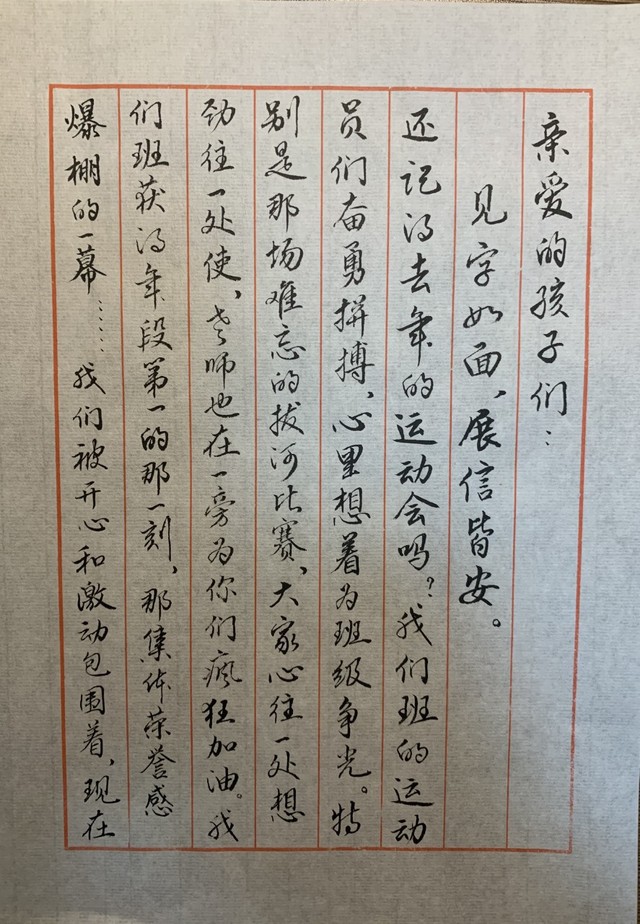 亲爱的孩子们：
见字如面，展信皆安。
还记得去年的运动会吗？我们班的运动
员们奋勇拼搏，心里想着为班级争光。特
别是那场难忘的拔河比赛，大家心往一处想
劲往一处使，老师也在一旁为你们疯狂加油。我
们班获得年段第一的那一刻，那集体荣誉感
爆棚的一幕……我们被开心和激动包围着，现在